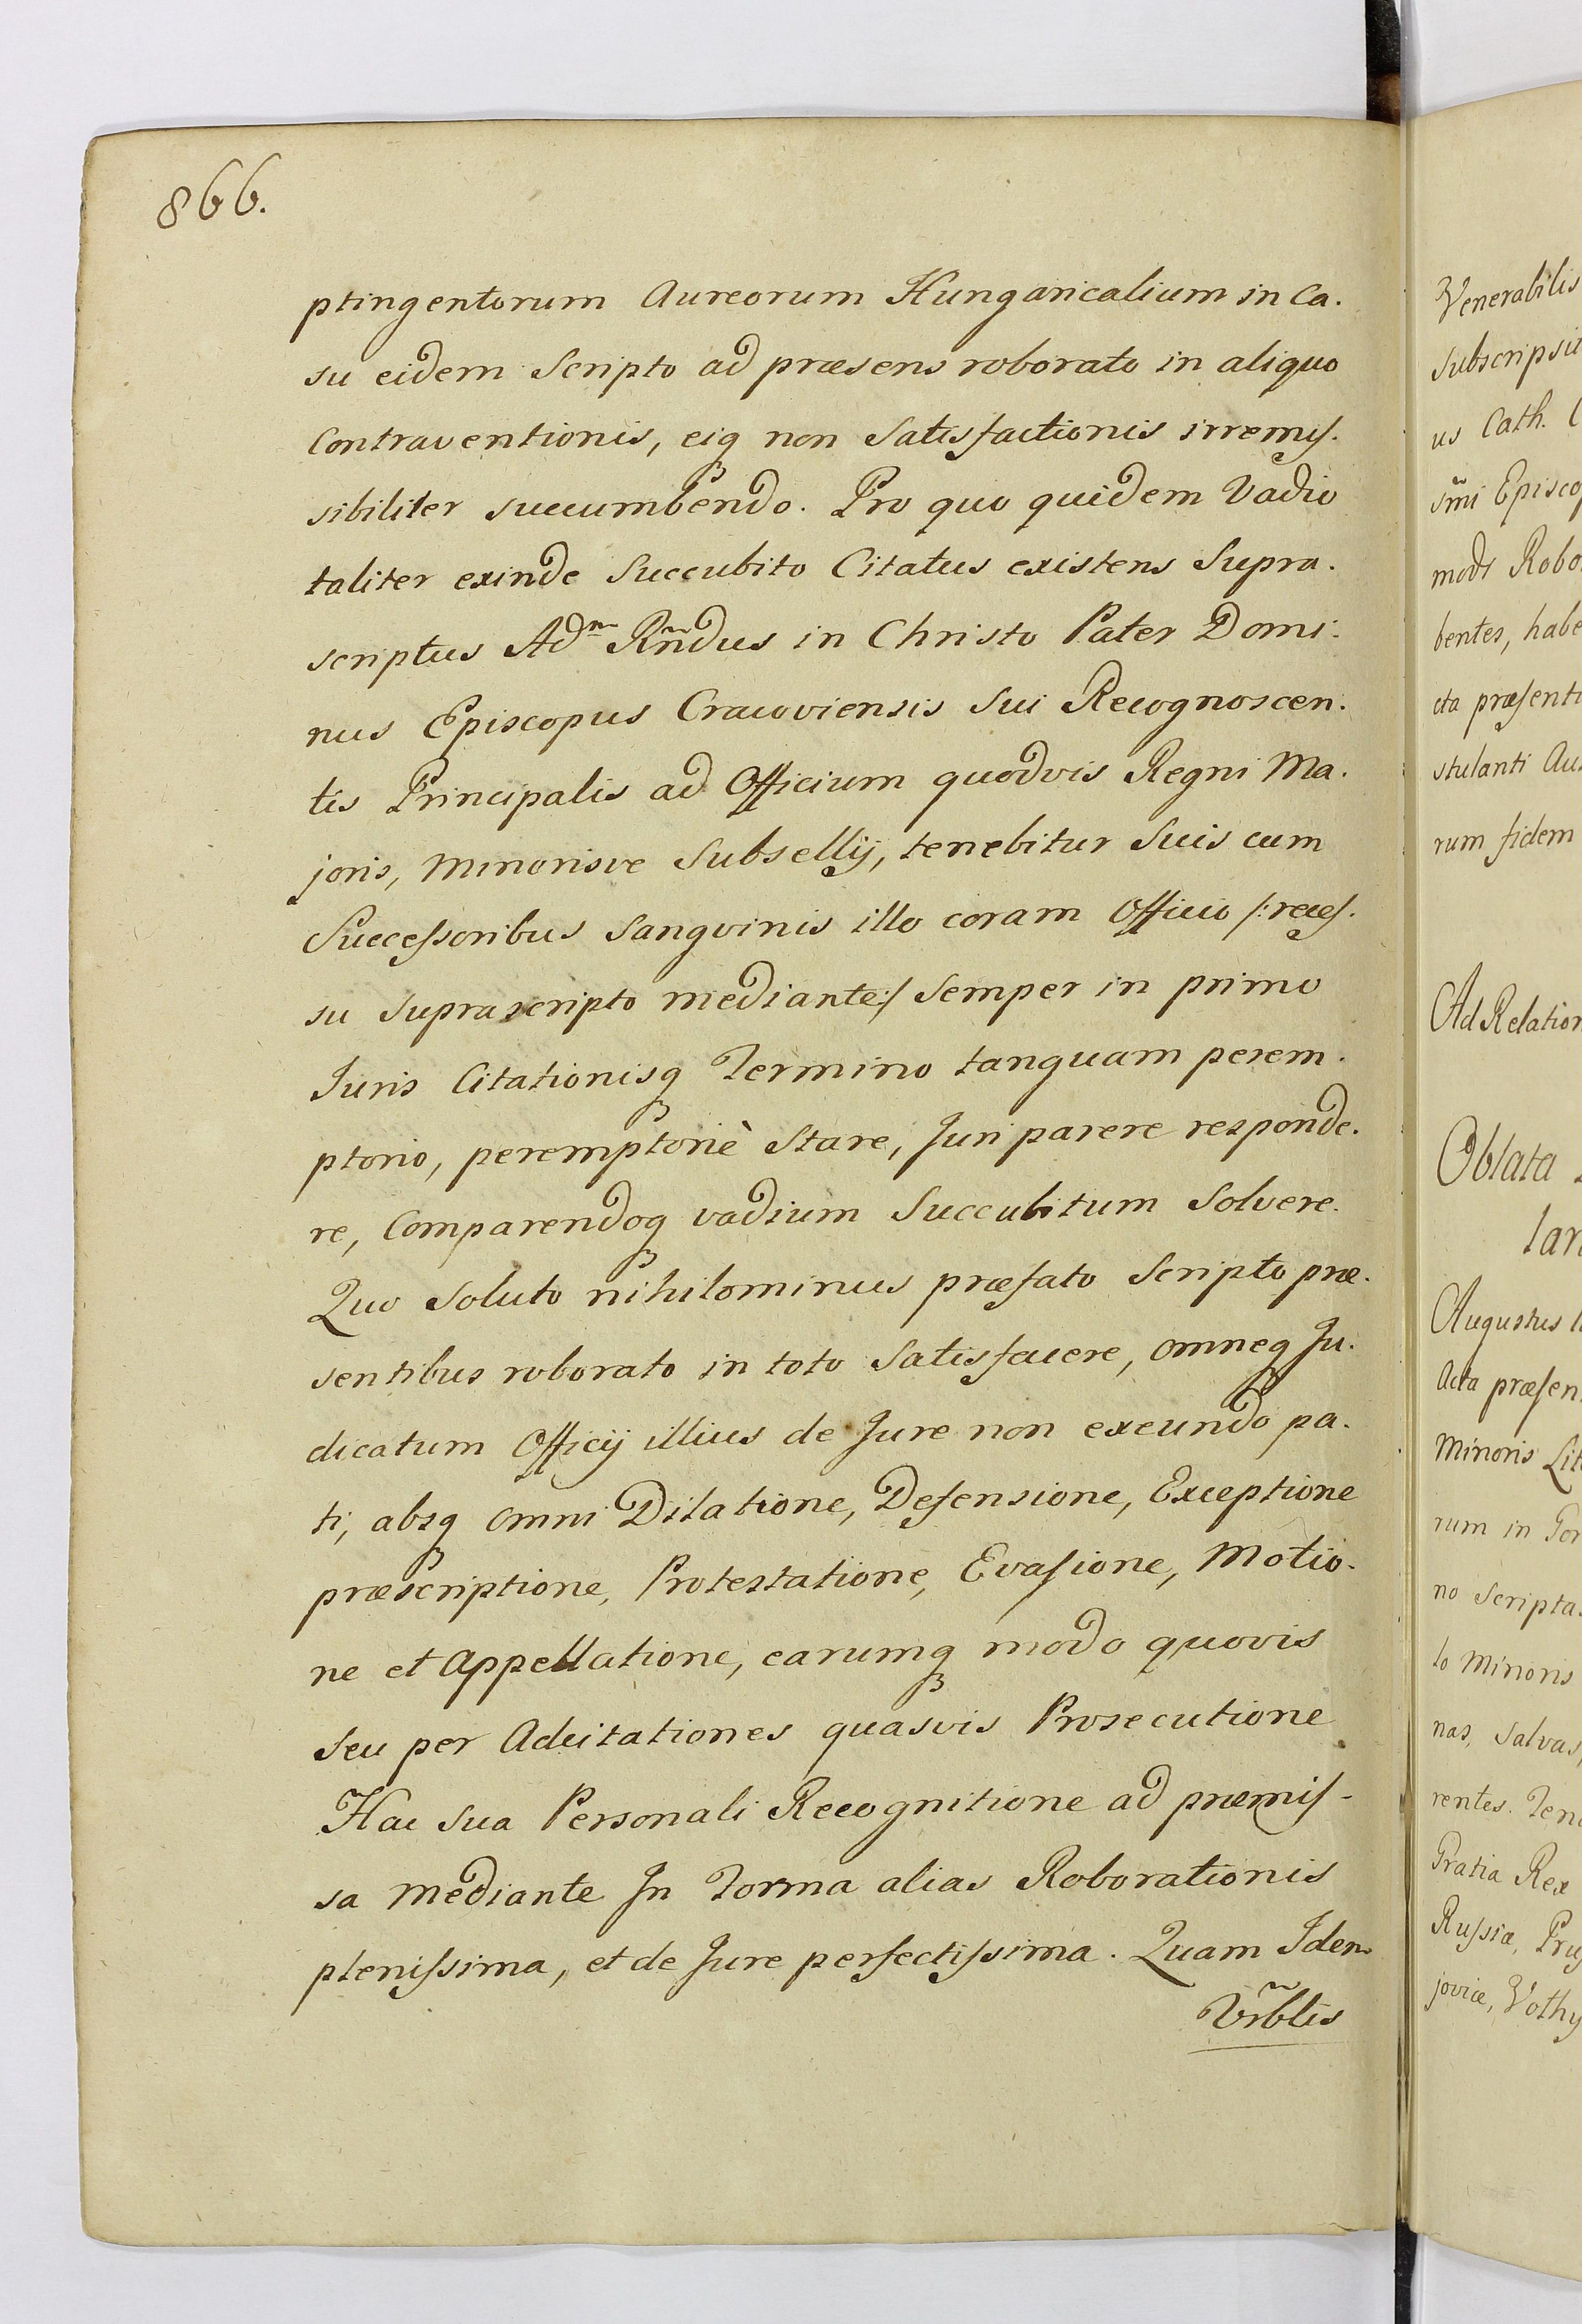 866.
ptingentorum Aureorum Hungaricalium in Ca.
su eidem Scripto ad præsens roborato in aliquo
Contraventionis, eiq₃ non Satisfactionis irremiſ.
sibiliter succumbendo. Pro quo quidem Vadio
taliter exinde Succubito Citatus existens Supra.
scriptus Adm Rñdus in Christo Pater Domi.
nus Episcopus Cracoviensis Sui Recognoscen.
tis Principalis ad Officium quodvis Regni Ma.
joris, Minorisve Subsellij, tenebitur Suis cum
Succeſsoribus Sangvinis illo coram Officio /: receſ.
su suprascripto mediante :/ Semper in primo
Juris Citationisq₃ Termino tanquam perem.
ptorio, peremptoriè Stare, Juri parere responde.
re, Comparendoq₃ vadium Succubitum Solvere.
Quo Soluto nihilominus præfato Scripto præ.
sentibus roborato in toto Satisfacere, omneq₃ Ju.
dicatum Officij illius de Jure non exeundo pa.
ti, absq₃ omni Dilatione, Defensione, Exceptione
præscriptione, Protestatione, Evaſione, Motio.
ne et Appellatione, earumq₃ modo quovis
Seu per Adcitationes quasvis Prosecutione
Hac sua Personali Recognitione ad præmiſ-
sa mediante In Forma alias Roborationis
pleniſsima, et de Jure perfectiſsima. Quam Idem
Vñblis
Venerabilis
Subscripsit
us Cath.
smi Episco
modi Robo
bentes, habe
cta præſenti
stulanti Au
rum fidem
Ad Relation
Oblata
lar
Augustus
Acta præſen
Minoris Lit
rum in
no Scripta
lo Minoris
nas, Salvas,
rentes. Teno
Gratia Rex
Ruſsiæ, Pruſ
joviæ, Vothy